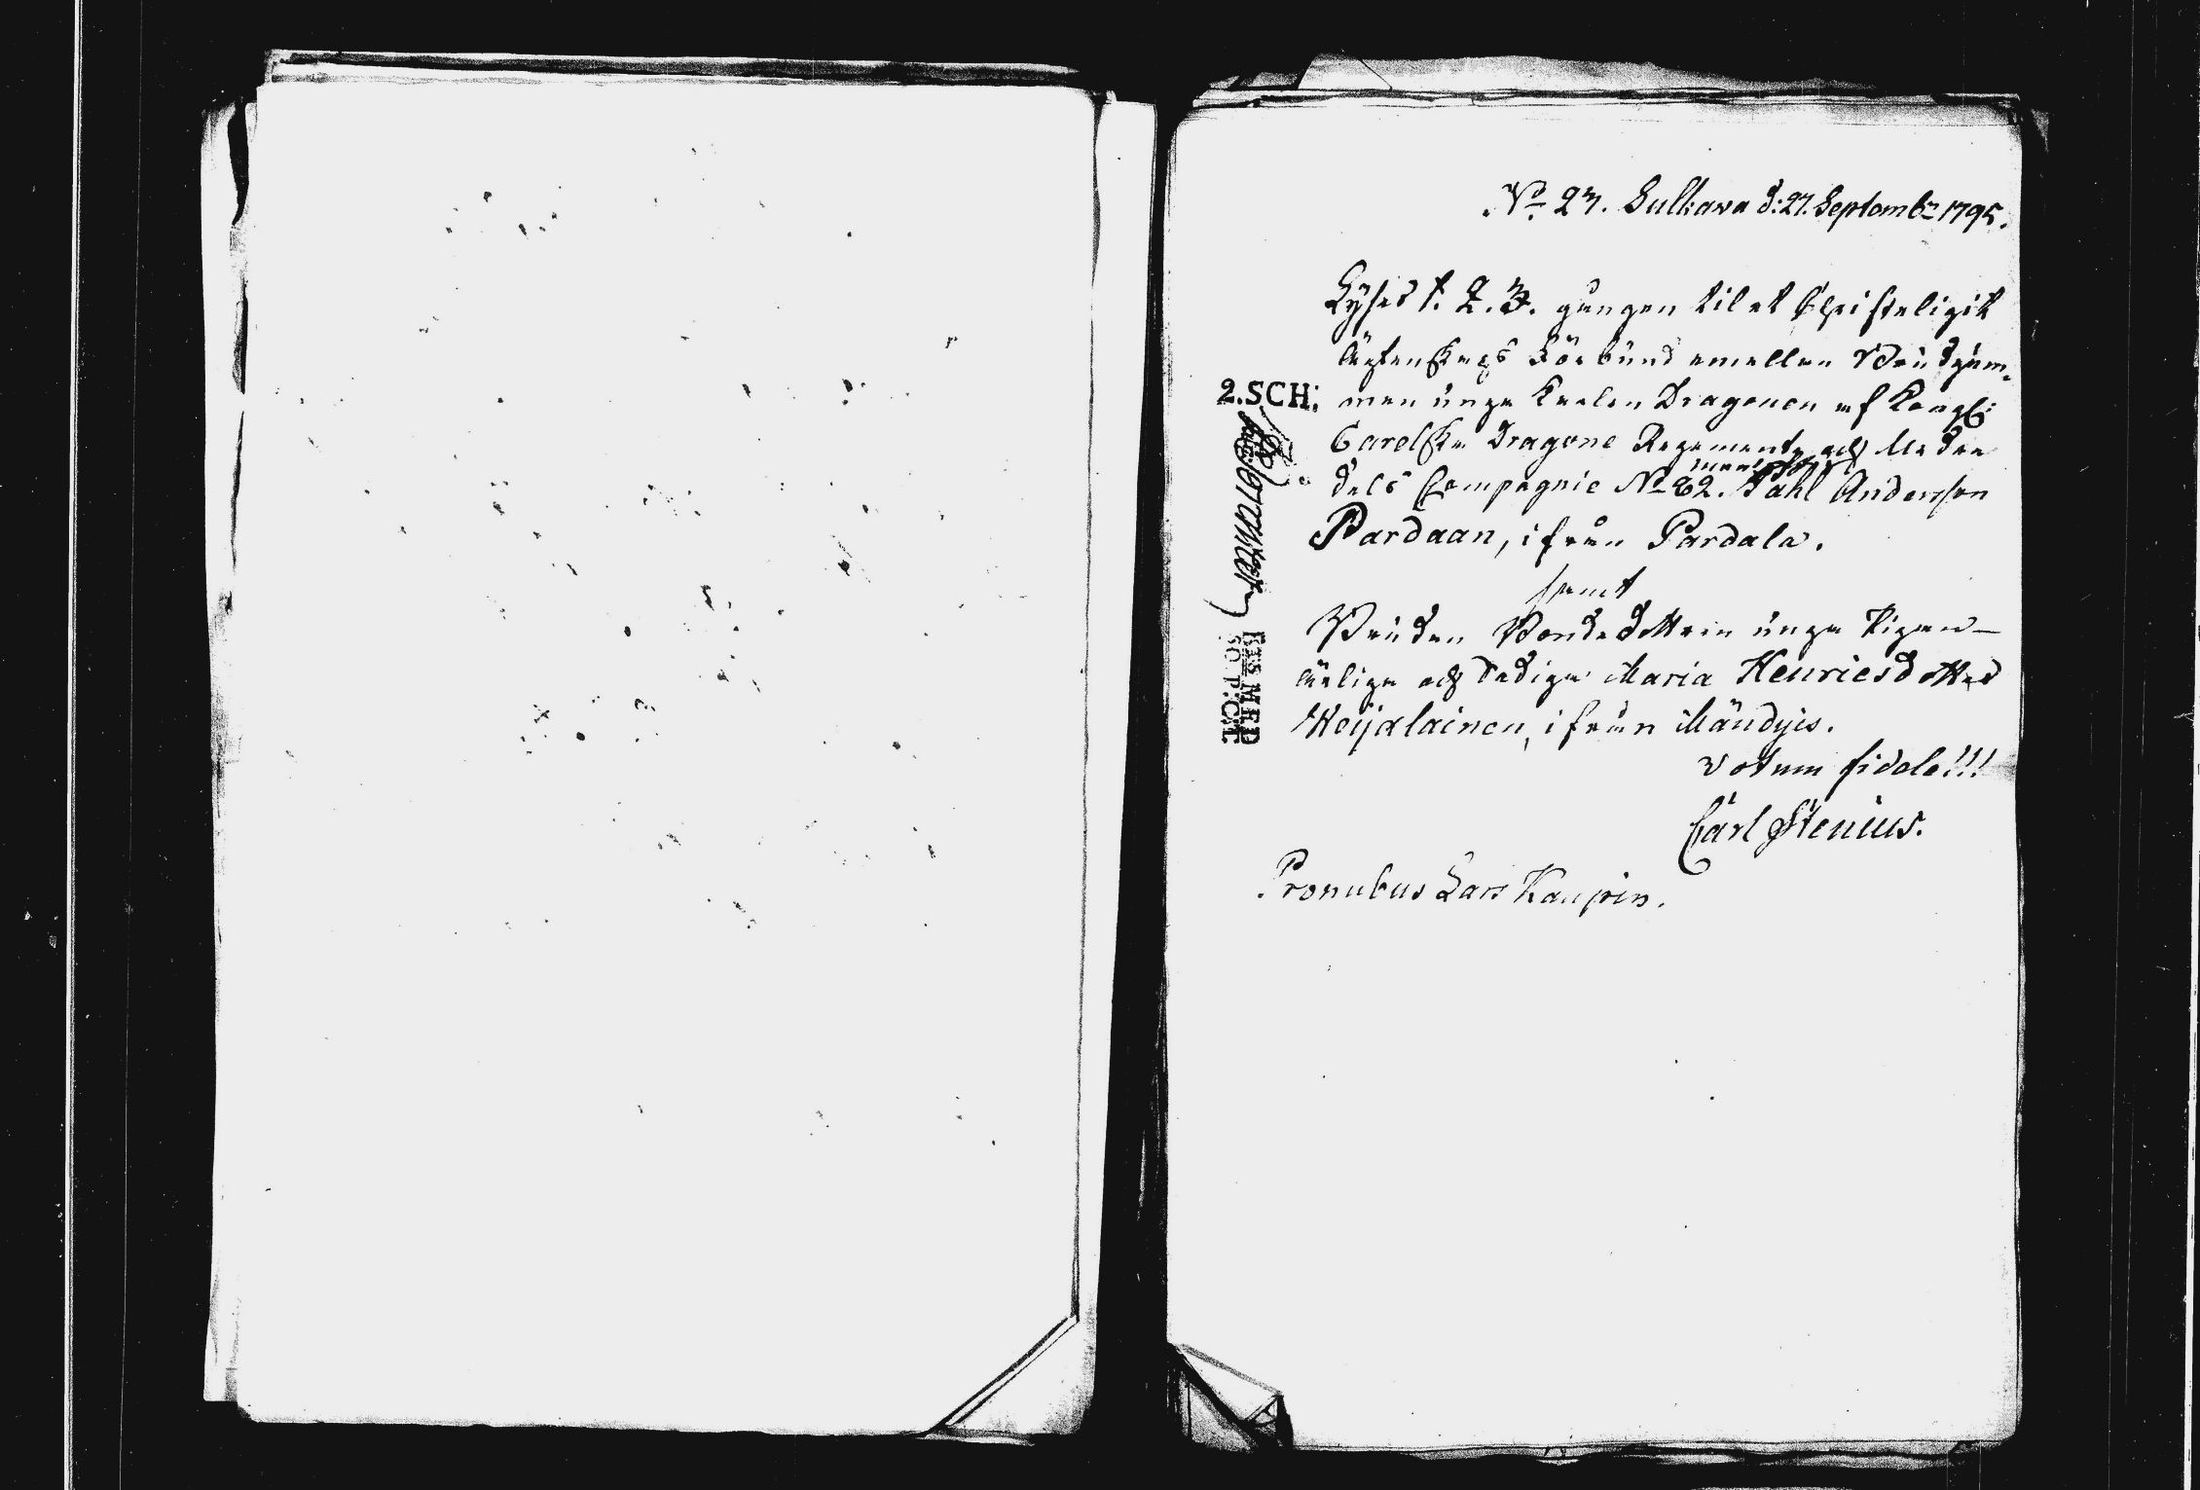 No 23. Sulkava d: 27. Septembr 1795.
Lyses 1. 2. 3. gången til et Christeligit
ächtenskaps Förbund emellan Brudgum-
2.SCH: men unga Karlen Dragonen af Kongl:
Carelska Dragone Regemente och
dels Compagnie No 62. Påhl Andersson
Pardaan, ifrån Pardala.
samt
Bruden Bonde dottren unga Pigan
ärliga och dediga Maria Henricsdotter
Weijalainen, ifrån Mändyis.
Votum fidele!!!
Carl Stenius.
Pronubus Lars Kaupin.